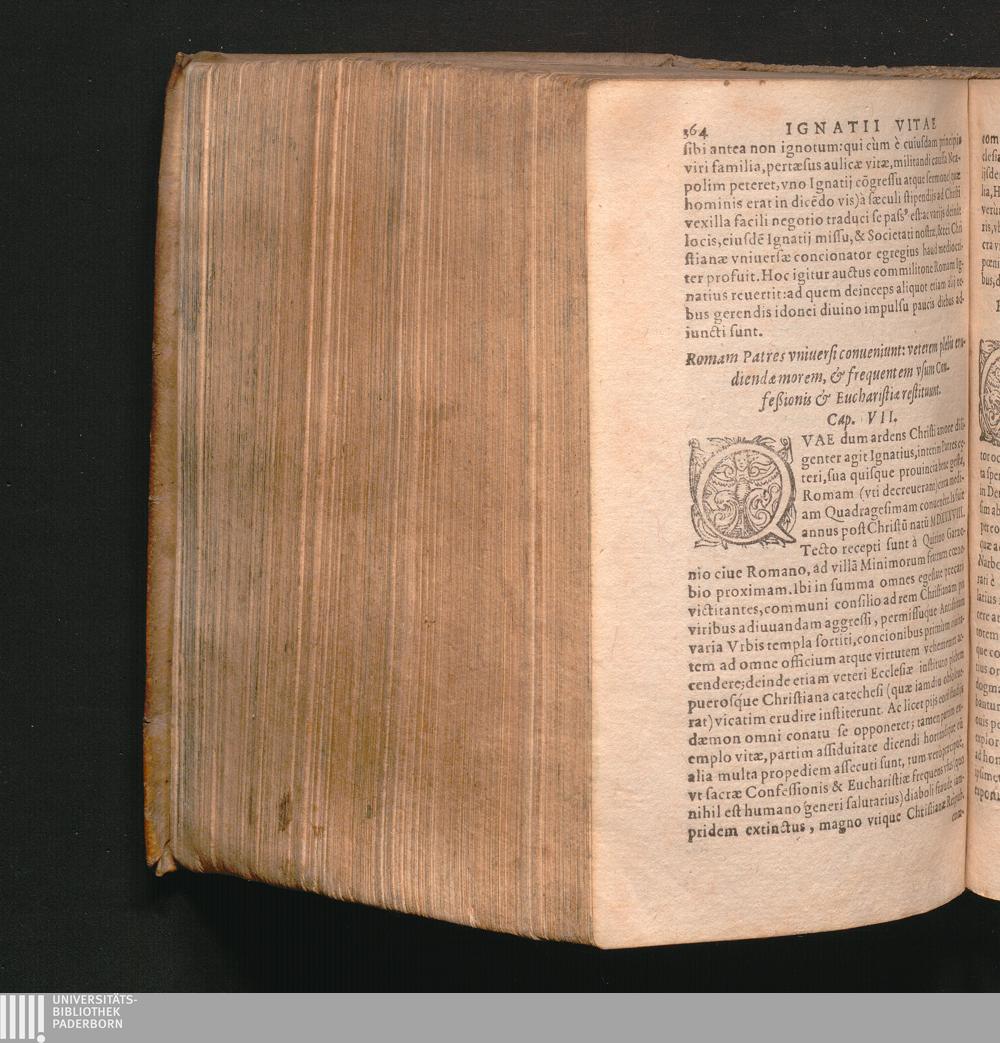 364 IGNATII VITAE
sibi antea non ignotum: qui cùm è cuiusdam principis
viri familia, pertæsus aulicæ vitæ, militandi caussa Nea-
polim peteret, vno Ignatij cōgressu atque sermone (quæ
hominis erat in dicēdo vis) à sæculi stipendijs ad Christi
vexilla facili negotio traduci se passꝰ est: ac varijs deinde
locis, eiusdē Ignatij missu, & Societati nostræ, & rei Chri
stianæ vniuersæ concionator egregius haud mediocri-
ter profuit. Hoc igitur auctus commilitone Romam Ig-
natius reuertit: ad quem deinceps aliquot etiam alij re-
bus gerendis idonei diuino impulsu paucis diebus ad-
iuncti sunt.
Romam Patres vniuersi conueniunt: veterem plebis eru-
diendæ morem, & frequentem vsum Con-
feßionis & Eucharistiæ restituunt.
Cap. VII.
QVAE dum ardens Christi amore dili-
genter agit Ignatius, interim Patres ce-
teri, sua quisque prouincia bene gesta,
Romam (vti decreuerant) circa medi-
am Quadragesimam conuenêre. Is fuit
annus post Christū natū MDXXXVIII.
Tecto recepti sunt à Quirino Garzo-
nio ciue Romano, ad villā Minimorum fratrum cœno-
bio proximam. Ibi in summa omnes egestate precario
victitantes, communi consilio ad rem Christianam pro
viribus adiuuandam aggressi, permissuque Antistitum
varia Vrbis templa sortiti, concionibus primùm ciuita-
tem ad omne officium atque virtutem vehementer ac-
cendere; deinde etiam veteri Ecclesiæ instituto plebem
puerosq́ue Christiana catechesi (quæ iamdiu obsoleue-
rat) vicatim erudire institerunt. Ac licet pijs eorū studijs
dæmon omni conatu se opponeret; tamen partim ex-
emplo vitæ, partim assiduitate dicendi hortandique cū
alia multa propediem assecuti sunt, tum verò præcipuè,
vt sacræ Confessionis & Eucharistiæ frequens vsus (quo
nihil est humano generi salutarius) diaboli fraude iam-
pridem extinctus, magno vtique Christianæ Reipub.
UNIVERSITÄTS-
BIBLIOTHEK
PADERBORN